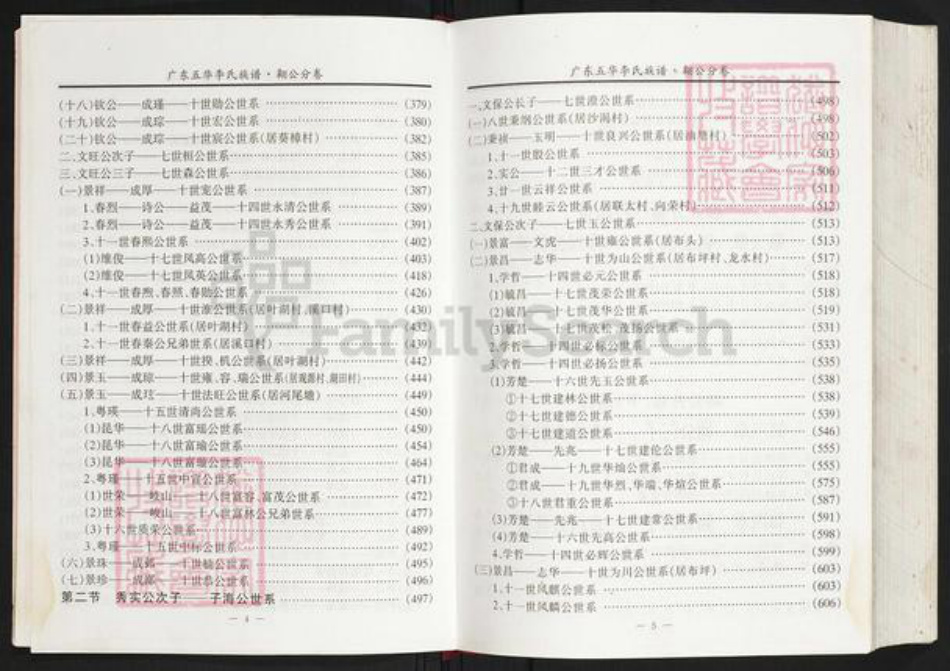 广东五华李氏族谱·鞠公分卷
(十八)钦公——成瑾——十世勋公世系 (379)
(十九)钦公——成琮——十世宏公世系 (380)
(二十)钦公——成琮——十世宸公世系(居葵樟村) (382)
二、文旺公次子——七世桓公世系 (385)
三、文旺公三子——七世森公世系 (386)
(一)景祥——成厚——十世宠公世系 (387)
1.春烈——诗公——益茂——十四世永清公世系 (389)
2.春烈——诗公——益茂——十四世永秀公世系 (391)
3.十一世春熙公世系 (402)
(1)维俊——十七世凤高公世系 (403)
(2)维俊——十七世凤英公世系 (418)
4.十一世春煦、春照、春勋公世系 (426)
(二)景祥——成厚——十世淮公世系(居叶湖村、溪口村) (430)
1.十一世春益公世系(居叶湖村) (432)
2.十一世春秦公兄弟世系(居溪口村) (439)
(三)景祥——成厚——十世揆、机公世系(居叶湖村) (442)
(四)景玉——成琼——十世雍、容、瑞公世系(居观源村、湖田村) (444)
(五)景玉——成玹——十世法旺公世系(居河尾塘) (449)
1.粤瑛——十五世清尚公世系 (450)
(1)昆华——十八世富瑶公世系 (450)
(2)昆华——十八世富瑜公世系 (454)
(3)昆华——十八世富公世系 (464)
2.粤瑾——十五世中宣公世系 (471)
(1)世荣——峻山——十八世富容、富茂公世系 (472)
(2)世荣——峻山——十八世富林公兄弟世系 (477)
(3)十六世质荣公世系 (489)
3.粤瑾——十五世中标公世系 (492)
(六)景珠——成——十世公世系 (495)
(七)景珍——成——十世恭公世系 (496)
第二节 秀实公次子——子海公世系 (497)
— 4 —
广东五华李氏族谱·鞠公分卷
一、文保公长子——七世澄公世系 (498)
(一)八世秉纲公世系(居沙渴村) (498)
(二)秉祯——玉明——十世良兴公世系(居油村) (502)
1.十一世殷公世系 (503)
2.实公——十二世三才公世系 (506)
3.廿一世云祥公世系 (511)
4.十九世睦云公世系(居联太村、向荣村) (512)
二、文保公次子——七世玉公世系 (513)
(一)景富——文虎——十世雍公世系(居布头) (513)
(二)景昌——志华——十世为山公世系(居布坪村、龙水村) (517)
1.学哲——十四世必元公世系 (518)
(1)毓昌——十七世茂荣公世系 (518)
(2)毓昌——十七世茂华公世系 (519)
(3)毓昌——十七世茂松、茂扬公世系 (531)
2.学哲——十四世必标公世系 (533)
3.学哲——十四世必扬公世系 (535)
(1)芳楚——十六世先玉公世系 (538)
①十七世建林公世系 (538)
②十七世建德公世系 (539)
③十七世建道公世系 (546)
(2)芳楚——先兆——十七世建伦公世系 (555)
①君成——十九世华灿公世系 (555)
②君成——十九世华烈、华端、华煊公世系 (575)
③十八世君重公世系 (587)
(3)芳楚——先兆——十七世建常公世系 (591)
(4)芳楚——十六世先高公世系 (598)
4.学哲——十四世必辉公世系 (599)
(三)景昌——志华——十世为川公世系(居布坪) (603)
1.十一世凤麒公世系 (603)
2.十一世凤麟公世系 (606)
— 5 —
FamilySearch